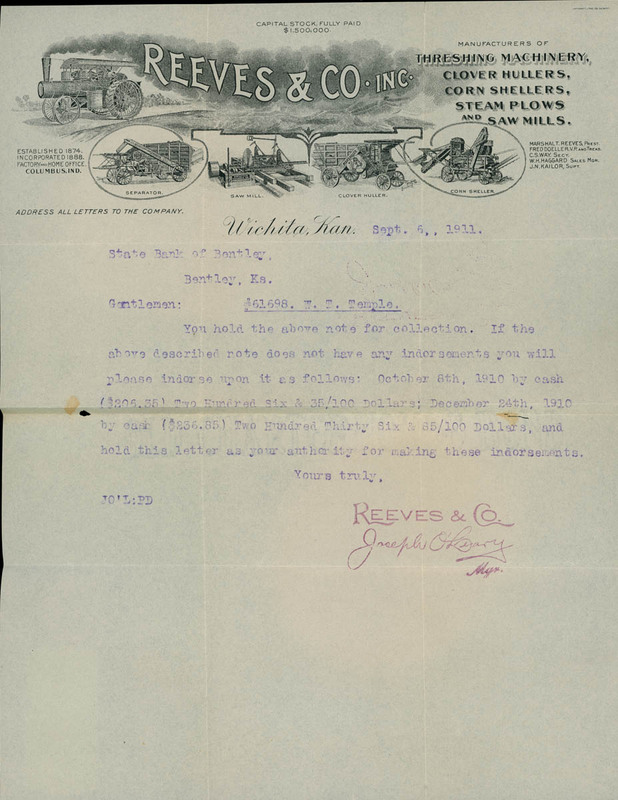 CAPITAL STOCK FULLY PAID
$1,500,000.
REEVES & CO. INC.
MANUFACTURERS OF
THRESHING MACHINERY,
CLOVER HULLERS,
CORN SHELLERS,
STEAM PLOWS
AND SAW MILLS.
ESTABLISHED 1874.
INCORPORATED 1888.
FACTORY AND HOME OFFICE
COLUMBUS, IND.
MARSHAL T. REEVES, PREST.
C.S. WAY, SECY.
W.H. HAGGARD SALES MGR.
J.N. KAILOR, SUPT.
SEPARATOR.
SAW MILL.
CLOVER HULLER.
CORN SHELLER.
ADDRESS ALL LETTERS TO THE COMPANY.
Wichita, Kan. Sept. 6,, 1911.
State Bank of Bentley,
Bentley, Ka.
Gentlemen: #61698. W. T. Temple.
You hold the above note for collection. If the
above described note does not have any indorsements you will
please indorse upon it as follows: October 8th, 1910 by cash
($206.35) Two Hundred Six & 35/100 Dollars; December 24th, 1910
by cash ($236.85) Two Hundred Thirty Six & 85/100 Dollars, and
hold this letter as your authority for making these indorsements.
Yours truly,
JO'L:PD
REEVES & CO.
Joseph O'Leary
Mgr.